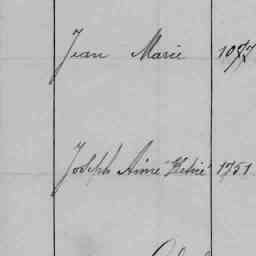 Jean Marie 1077
Joseph Aimé 1751